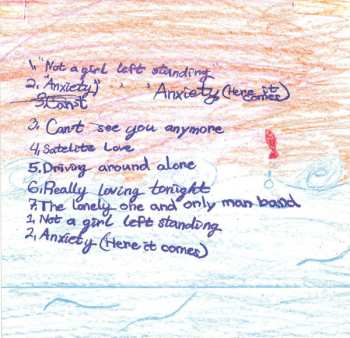 1. "Not a girl left standing"
2. "Anxiety" " " Anxiety (Here it comes)
3. Can't
3. Can't see you anymore
4. Satelite Love
5. Driving around alone
6. Really loving tonight
7. The lonely one and only man band
1. Not a girl left standing
2. Anxiety (Here it comes)